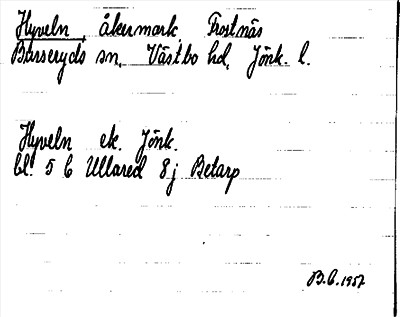 Hyveln, åkermark, Frostnäs
Båraryds sn, Västbo hd, Jönk. l.
Hyveln ek. Jönk.
bl. 5 C Ullared 8 j Betarp
B.C. 1957